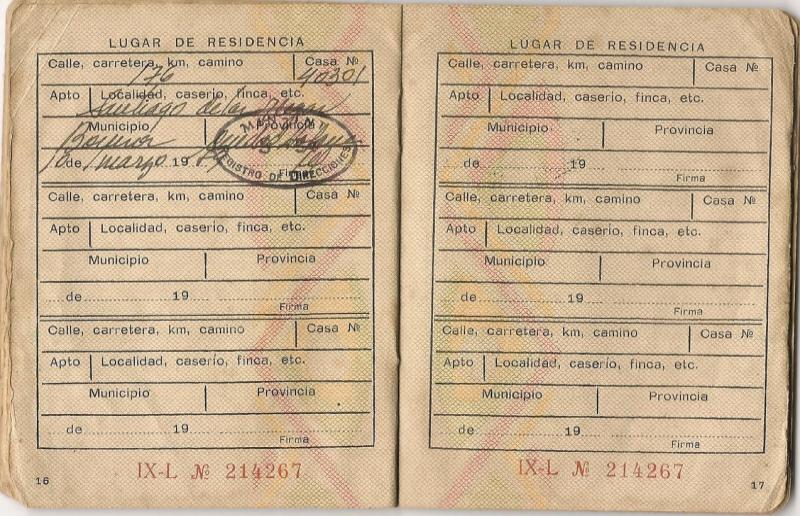 LUGAR DE RESIDENCIA
Calle, carretera, km, camino Casa №
176 40301
Apto Localidad, caserio, finca, etc.
Santiago de las Vegas
Municipio Provincia
Boyeros
16 de marzo 19
Firma
REGISTRO DE DIRECCIONES
Calle, carretera, km, camino Casa №
Apto Localidad, caserio, finca, etc.
Municipio Provincia
de 19
Firma
Calle, carretera, km, camino Casa №
Apto Localidad, caserio, finca, etc.
Municipio Provincia
de 19
Firma
IX-L № 214267
16
LUGAR DE RESIDENCIA
Calle, carretera, km, camino Casa №
Apto Localidad, caserio, finca, etc.
Municipio Provincia
de 19
Firma
Calle, carretera, km, camino Casa №
Apto Localidad, caserio, finca, etc.
Municipio Provincia
de 19
Firma
Calle, carretera, km, camino Casa №
Apto Localidad, caserio, finca, etc.
Municipio Provincia
de 19
Firma
IX-L № 214267
17